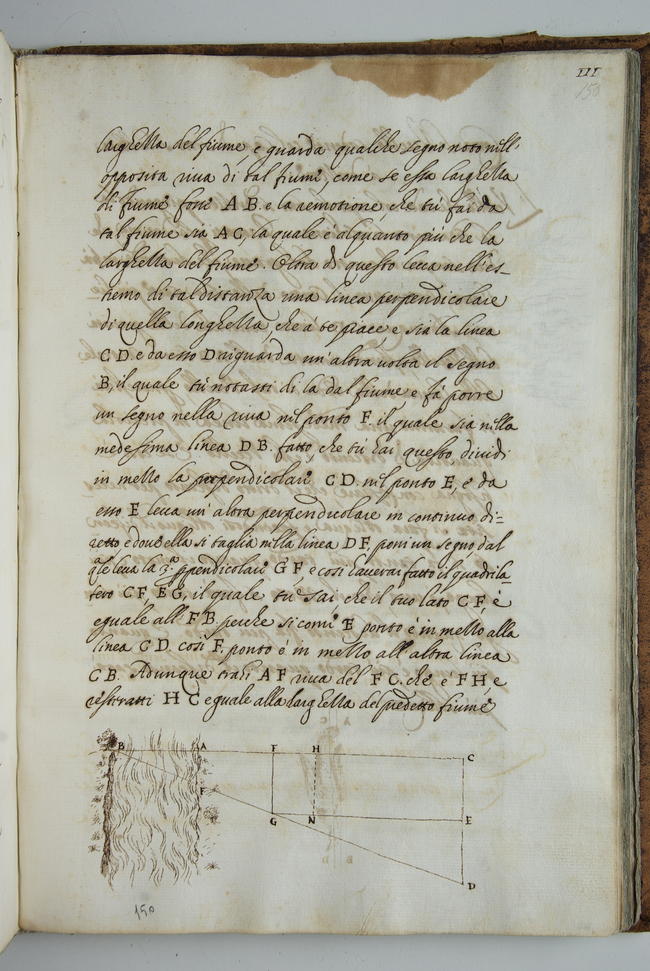 III
150
larghezza del fiume, e guarda qualche segno noto nell'
opposita riva di tal fiume, come se essa larghezza
di fiume fosse A B. e la remotione, che tu fai da
tal fiume sia A C, la quale è alquanto più che la
larghezza del fiume. Oltra di questo leva nell'es=
tremo di tal distanza una linea perpendicolare
di quella longhezza, che à te piace, e sia la linea
C D. e da esso D riguarda un'altra volta il segno
B, il quale tu notasti di la dal fiume e fà porre
un segno nella riva nel ponto F. il quale sia nella
medesima linea D B. fatto, che tu hai questo, dividi
in mezzo la perpendicolare C D. nel ponto E, e da
esso E leva un'altra perpendicolare in continuo di=
retto e dove ella si taglia nella linea D F, poni un segno, dal
q.le leva la 3.a ppendicolare G F, e cosi haverai fatto il quadrila=
tero C F, E G, il quale tu sai, che il suo lato C F, è
eguale all' F B. perche si come E ponto è in mezzo alla
linea C D. cosi F. ponto è in mezzo all'altra linea
C B. Adunque trasi A F riva del F C. che è F H, e
restarati H C eguale alla larghezza del predetto fiume
B A F H C
F
G N E
D
150